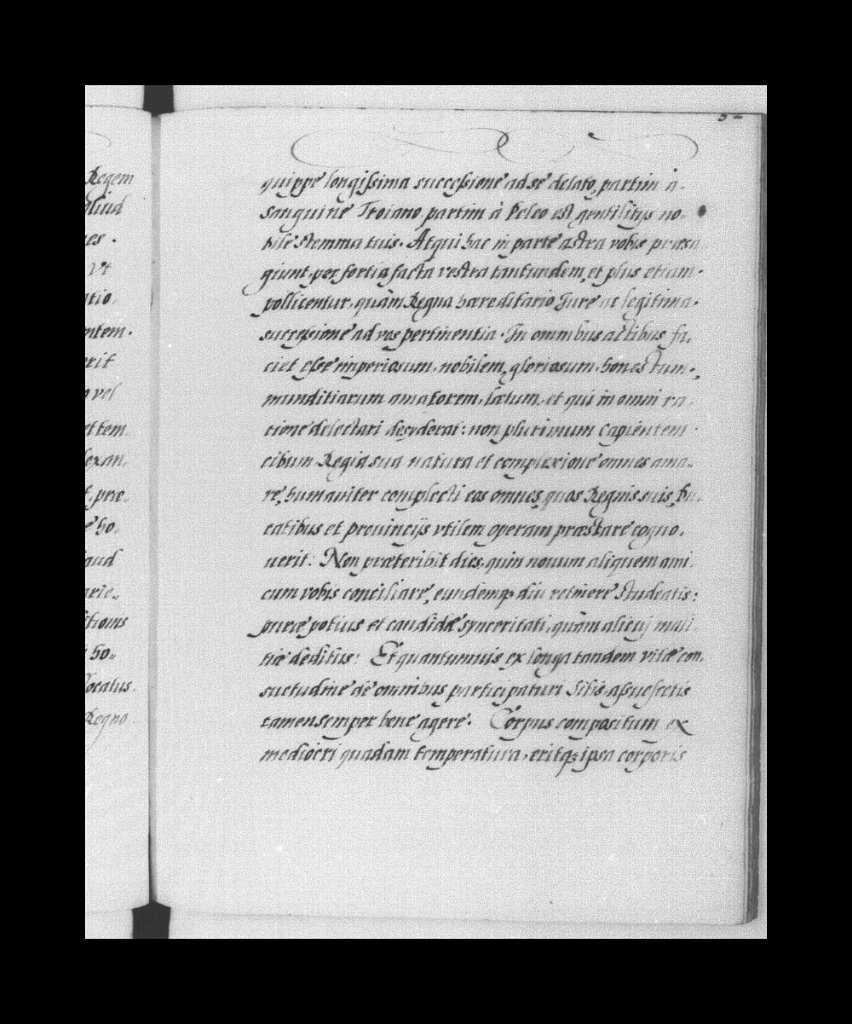 52
Regem
aliud
es.
Vt
tio.
ntem.
erit
vel
et tem
lexan.
t, præ
ho.
aud
arie..
tions
ho..
locatus.
Regno.
quippe longissima successione ad se delato, partim à
sanguine Troiano, partim à Peleo est gentilitijs no.
bile stemma tuis. Atqui hac in parte astra vobis præsa
giunt, per fortia facta vestra tantundem, et plus etiam.
pollicentur, quàm Regna hæreditario Jure ac legitima.
successione ad vos pertinentia. In omnibus actibus fa.
ciet esse imperiosum, nobilem, gloriosum, honestum.,
munditiarum amatorem, lætum, et qui in omni ra.
tione delectari desyderat: non plurimum capientem
cibum. Regia sua natura et complexione omnes ama.
re, humaniter complecti eos omnes, quos Regnis suis, Du.
catibus et provincijs vtilem operam præstare cogno.
uerit. Non præteribit dies, quin nouum aliquem ami.
cum vobis conciliare, eundemq; diu retinere studeatis:
puræ potius et candidæ synceritati, quàm alicuj mali
tiæ deditus: Et quantumuis ex longa tandem vitæ con.
suetudine de omnibus participaturi sitis assuefectis
tamen semper bene agere. Corpus compositum ex
mediocri quadam temperatura, eritq; ipsa corporis